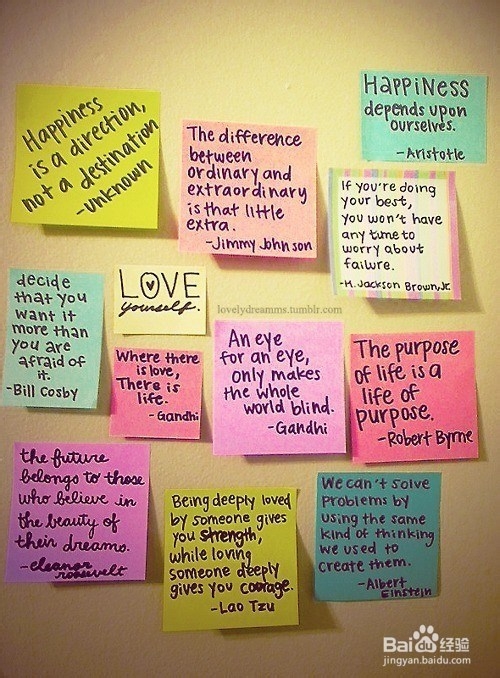 Happiness
is a direction,
not a destination
-unknown
The difference
between
ordinary and
extraordinary
is that little
extra.
-Jimmy Johnson
HAPPiNESS
depends upon
ourselves.
-Aristotle
If you're doing
your best,
you won't have
any time to
worry about
failure.
-H. Jackson Brown, Jr.
decide
that you
want it
more than
you are
afraid of
it.
-Bill Cosby
LOVE
yourself.
lovelydreamms.tumblr.com
Where there
is love,
There is
life.
-Gandhi
An eye
for an eye,
only makes
the whole
world blind.
-Gandhi
The purpose
of life is a
life of
purpose.
-Robert Byrne
the future
belongs to those
who believe in
the beauty of
their dreams.
-eleanor
roosevelt
Being deeply loved
by someone gives
you strength,
while loving
someone deeply
gives you courage.
-Lao Tzu
We can't solve
problems by
using the same
kind of thinking
we used to
create them.
-Albert
Einstein
Baidu 经验
jingyan.baidu.com